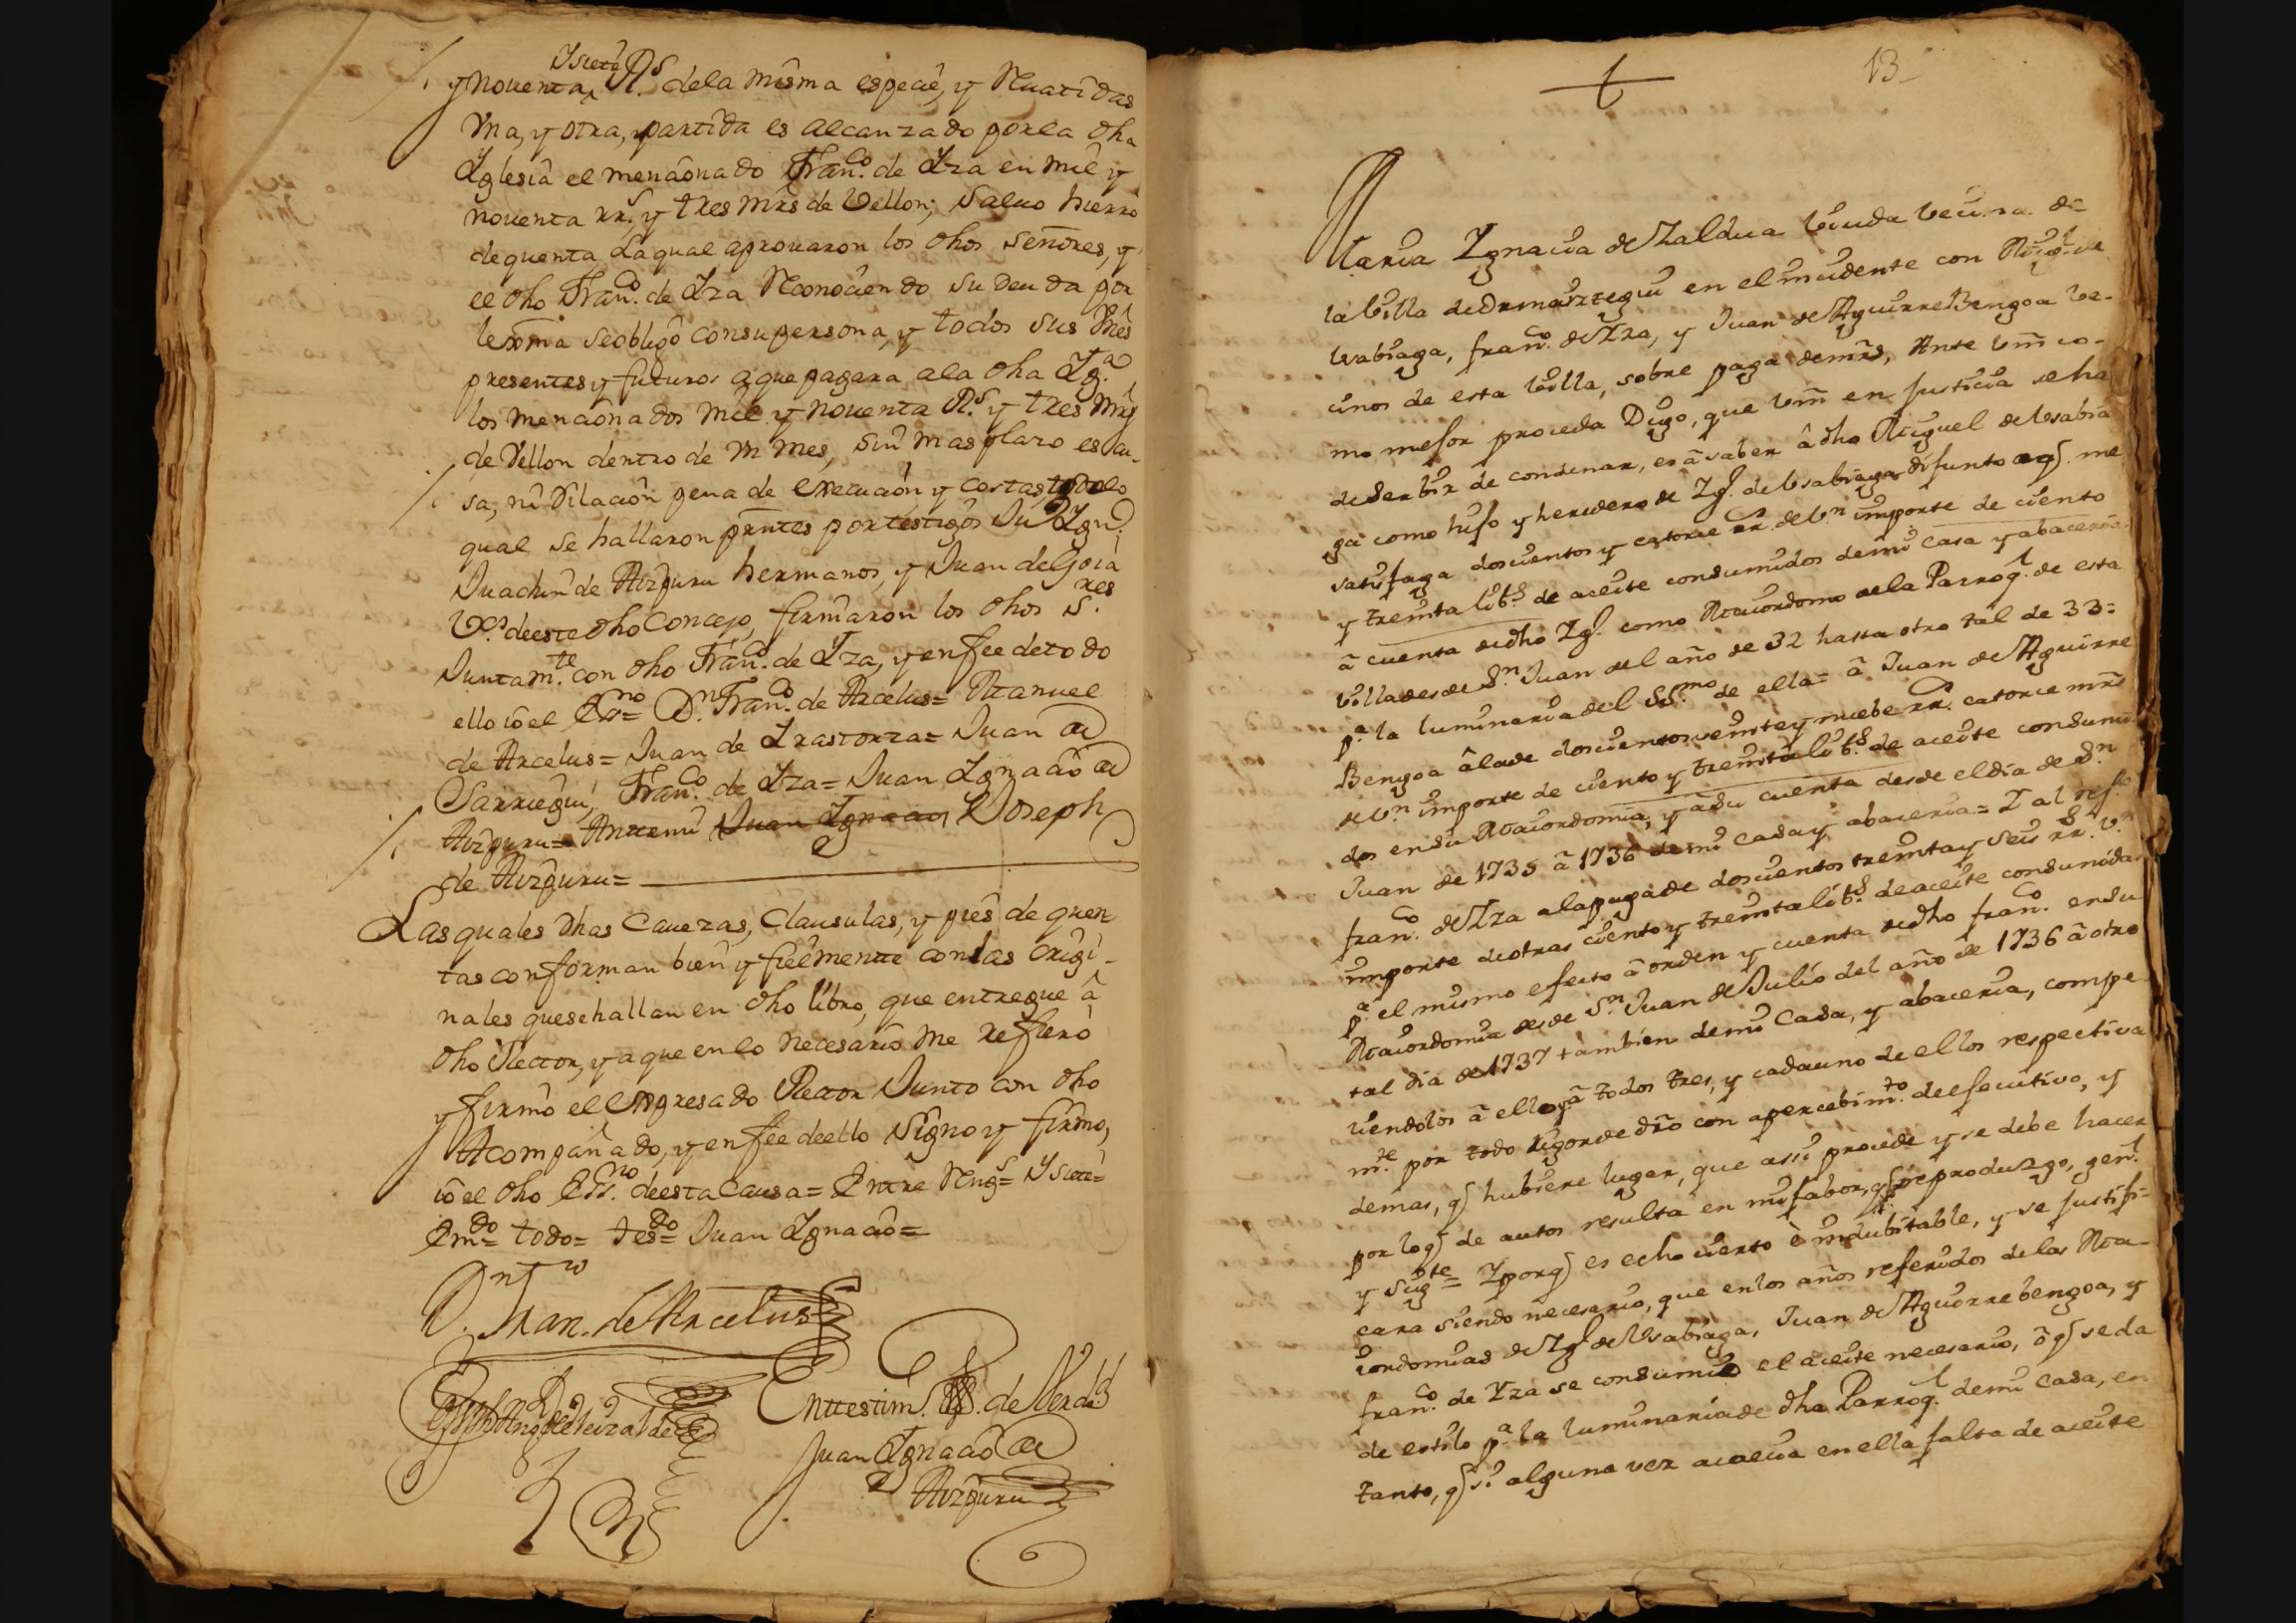 Ysiete
y noventa R.s dela misma especie, y Revatidas
Vna, y otra, partida es alcanzado por la dha
Yglesia el mencionado Fran.co de Yza en mil y
noventa rr.s y tres mrs de Vellon; Saluo hierro
de quenta La qual aprouaron los dhos señores, y
el dho Fran.co de Yza Reconociendo su deuda por
lexma se obligô con su persona, y todos sus Vnes
presentes y futuros a que pagara ala dha Yg.a
los mencionados mil y noventa R.s y tres mrs
de Vellon dentro de Vn mes, sin mas plazo escu-
sa, ni Dilacion pena de execucion y costas, todo lo
qual se hallaron prntes por testigos Ju.o Ygn.o
Juachin de Aizpuru hermanos, y Juan de Goia
V.os de este dho Concejo, firmaron los dhos S.res
Juntam.te con dho Fran.co de Yza, y en fee de todo
ello io el Ess.no = D.n Fran.co de Arcelus= Manuel
de Arcelus= Juan de Yrastorza= Juan de
Sarriegui, Fran.co de Yza= Juan Ygnacio de
Aizpuru= Antemi Juan Ygnacio Joseph
de Aizpuru=
Las quales dhas Cauezas, Clausulas, y pies de quen
tas conforman bien y fielmente con las origi-
nales que se hallan en dho libro, que entregue â
dho Rector, y a que en lo necesario me refiero
y firmô el expresado Rector Junto con dho
Acompañado, y en fee de ello signo y firmo,
io el dho Ess.no de esta Causa= Entre Reng.s= Ysiete=
Em.do= todo= tes.do= Juan Ygnacio=
D.n Fran.co de Arcelus
En testim.o de Verdad
Juan Ygnacio de
Aizpuru
13
Maria Ygnacia de Zaldua Viuda vecina de
la Villa de Ormaiztegui en el incidente con Mig.l de
Usabiaga, fran.co de Yza, y Juan de Aguirre Bengoa ve-
cinos de esta Villa, sobre paga de mrs, Ante Vm co-
mo mejor proceda Digo, que Vm en Justicia se ha
de serbir de condenar, es â saber â dho Miguel de Usabia
ga como hijo y heredero de Yg.o de Usabiaga difunto a q me
satisfaga doscientos y catorce rr. de v.n importe de ciento
y treinta lib.s de aceite consumidos de mi casa y abaceria
â cuenta de dho Yg.o como Maiordomo de la Parroq.l de esta
villa desde S.n Juan del año de 32 hasta otro tal de 33=
p.a la luminaria del SS.mo de ella= â Juan de Aguirre
Bengoa â la de doscientos veinte y nuebe rr. catorce mrs
de v.n importe de ciento y treinta lib.s de aceite consumi
dos en su Maiordomia, y a su cuenta desde el dia de S.n
Juan de 1735 â 1736 de mi casa y abaceria= Y al ref.do
fran.co de Yza a la paga de doscientos treinta y seis rr. v.n
importe de otras ciento y treinta lib.s de aceite consumidas
p.a el mismo efecto â orden y cuenta de dho fran.co en su
Maiordomia desde S.n Juan de Julio del año de 1736 â otro
tal dia de 1737 tambien de mi Casa, y abaceria, compe
liendolos â ello â todos tres, y cada uno de ellos respectiva
m.te por todo rigor de dro con apercebim.to de efecutivo, y
demas, q hubiere lugar, que assi procede y se debe hacer
por lo q de autos resulta en mi fabor, q reproduzgo, gen.l
y sig.te= Y porq es echo cierto è indubitable, y se justifi=
cara siendo necesario, que en los años referidos de las Ma-
iordomias de Yg.o de Usabiaga, Juan de Aguirrebengoa, y
fran.co de Yza se consumio el aceite necesario, ô q se da
de estilo p.a la luminaria de dha Parroq.l de mi Casa, en
tanto, q si alguna vez acaecia en ella falta de aceite